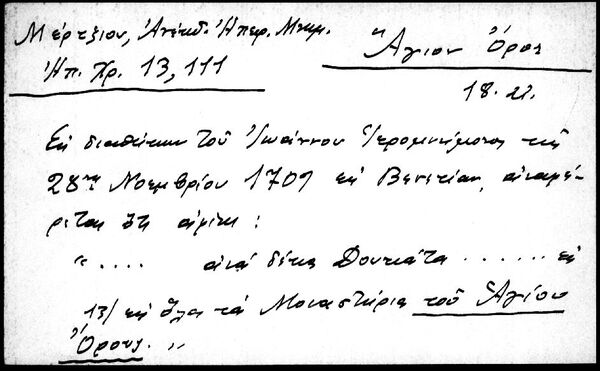 Μέρτζιου, Ἀνέκδ. Ἠπειρ. Μνημ.
Ἠπ. Χρ. 13, 111
Ἅγιον Ὄρος
18. αι.
Ἐκ διαθήκης τοῦ Ἰωάννου Ἱερομνήμονος τῆς
28ης Νοεμβρίου 1709 ἐν Βενετίᾳ, ἀναφέ-
ρεται ὅτι ἀφίνει :
".... ἀνά δέκα Δουκάτα ....... εἰ
13) εἰς ὅλα τά Μοναστήρια τοῦ Ἁγίου
Ὄρους. "